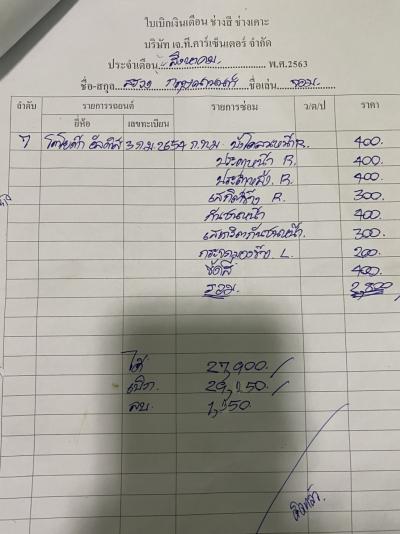 ใบเบิกเงินเดือน ช่างสี ช่างเคาะ
บริษัท เจ.ที.คาร์เซ็นเตอร์ จำกัด
ประจำเดือน สิงหาคม พ.ศ.2563
ชื่อ-สกุล ชื่อเล่น
ลำดับ รายการรถยนต์ รายการซ่อม ว/ด/ป ราคา
ยี่ห้อ เลขทะเบียน
7 โตโยต้า อัลติส 3 ก.ม. 2654 ก.ท.ม. R. 400.
ประตูหน้า R. 400.
ประตูหลัง R. 400.
R. 300.
กันชนหน้า 400.
กันชนหน้า 300.
กระจกมองข้าง L. 200.
ขัดสี 400.
รวม 2,800
ได้ 27,900
เบิก 29,150
ลบ 1,150